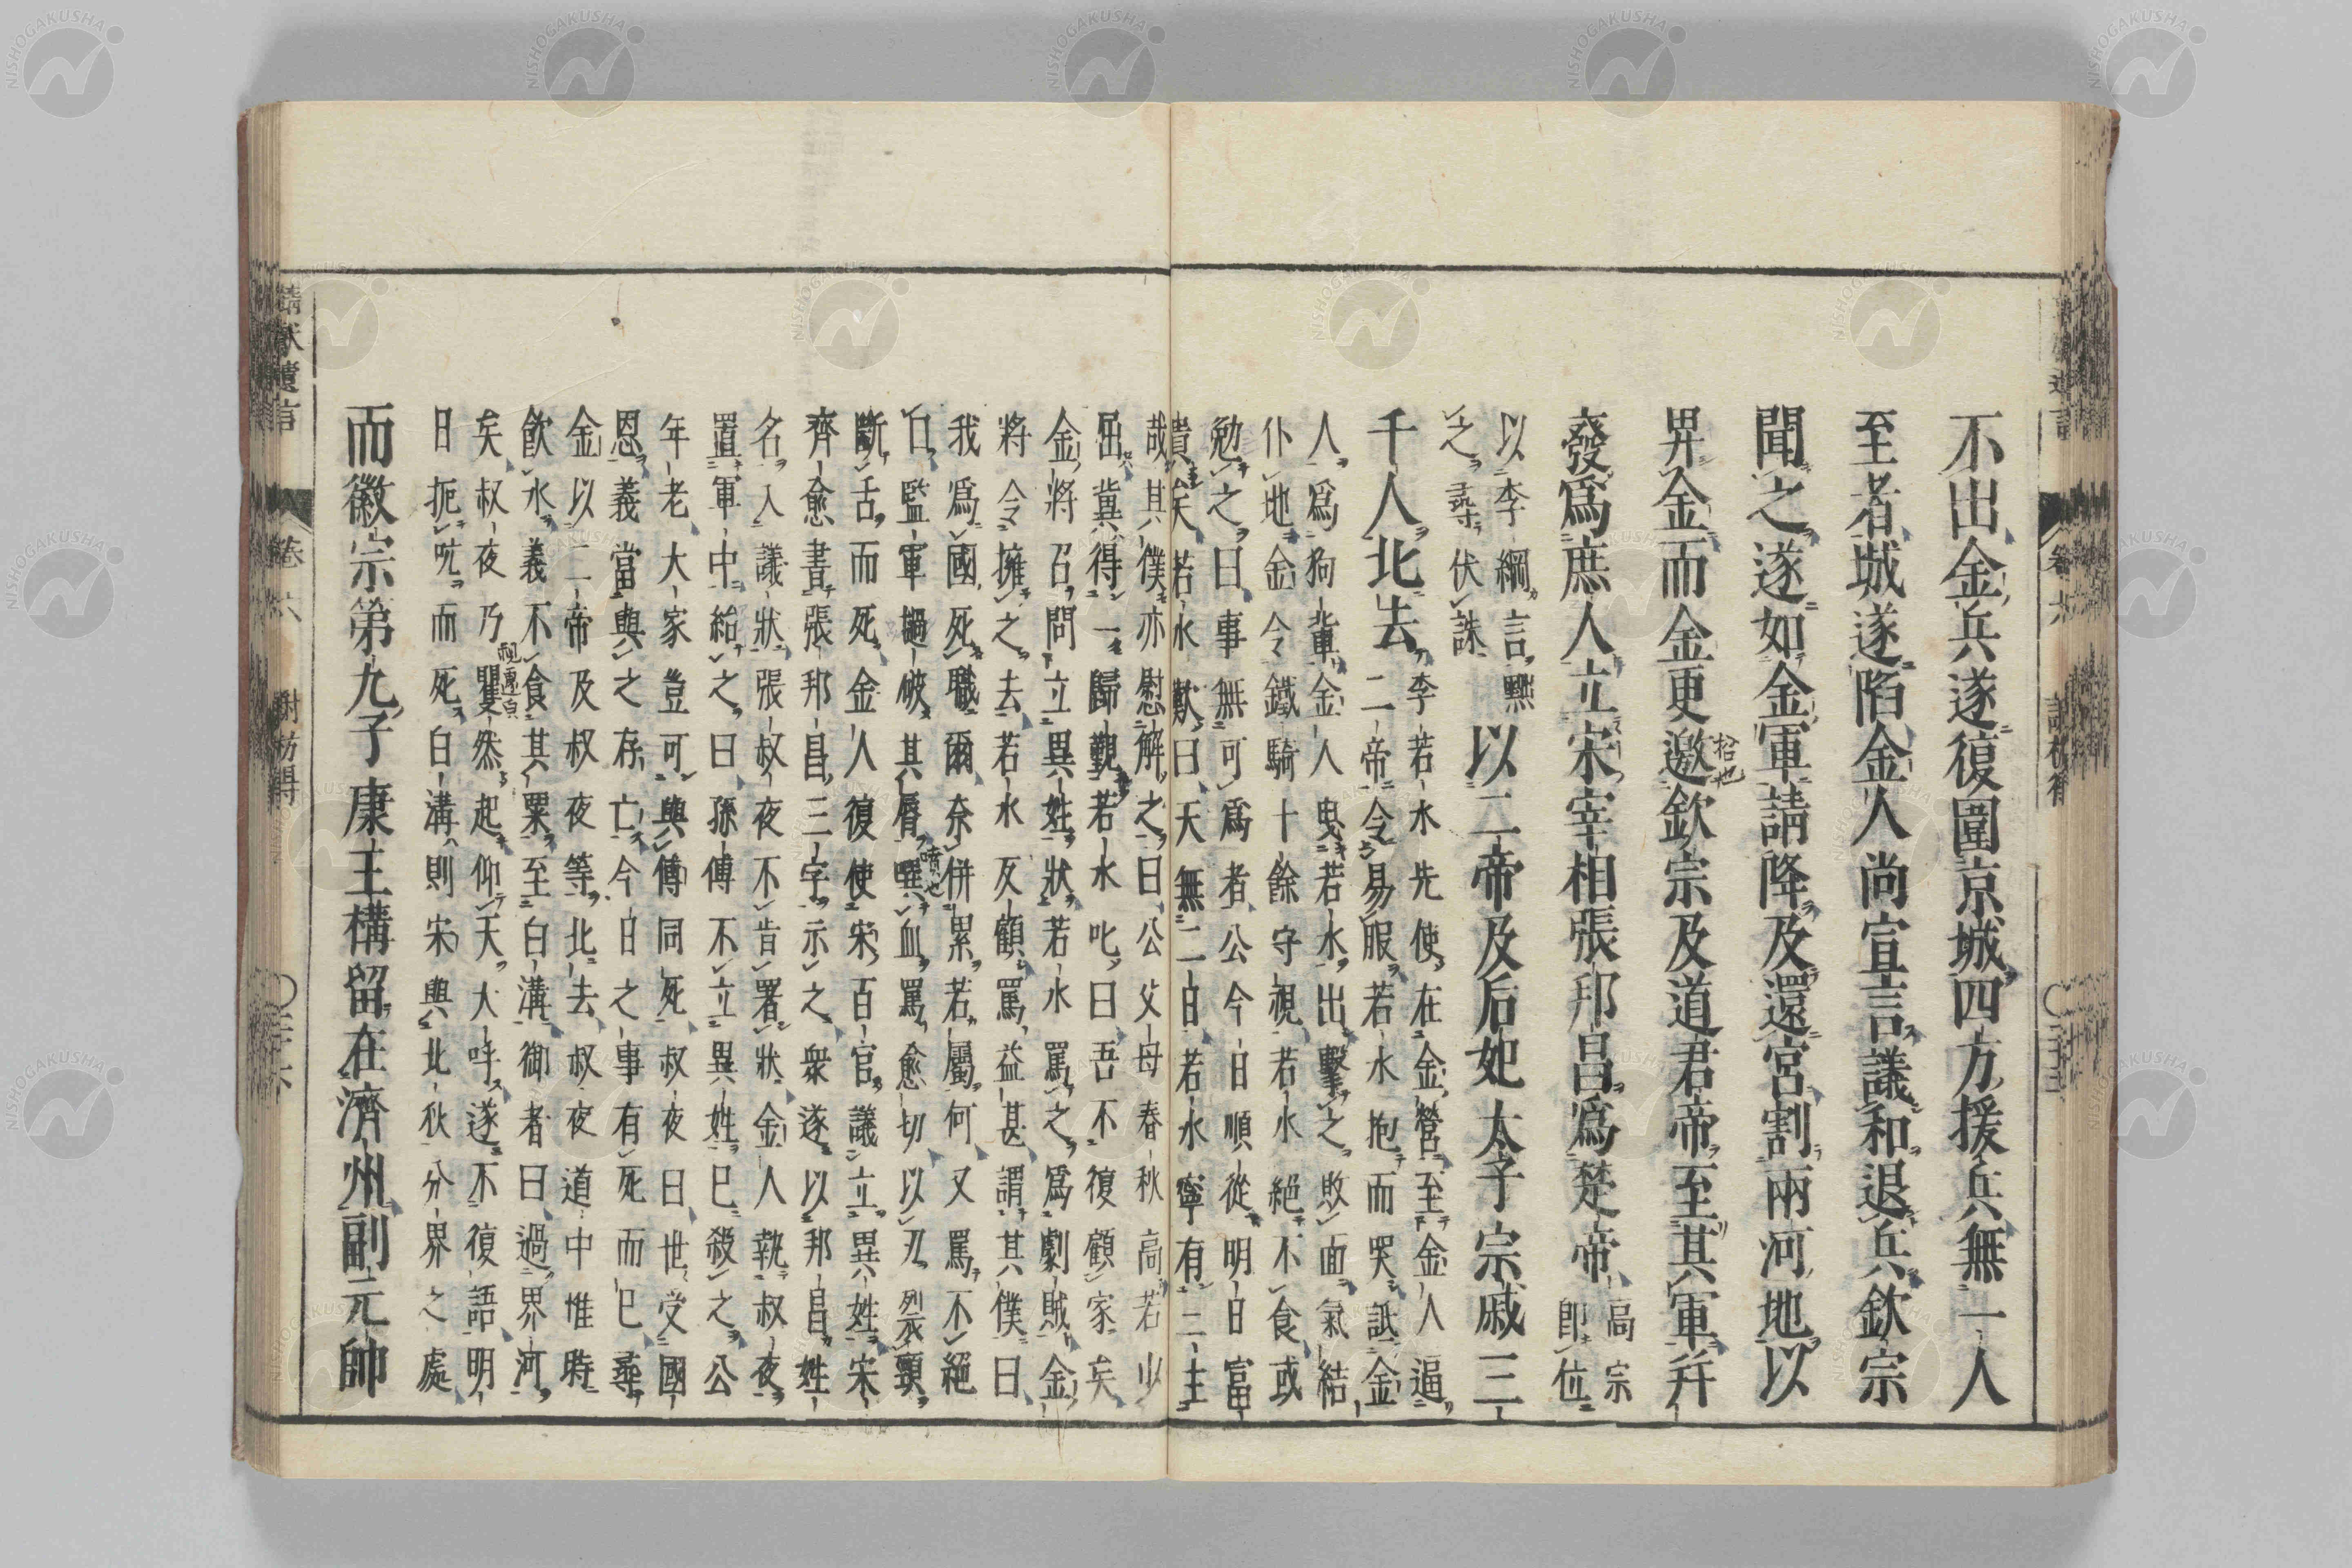 不出金兵遂復圍京城四方援兵無一人
至者城遂陷金人尚宣言議和退兵欽宗
聞之遂如金軍請降及還宮割兩河地以
畀金而金更邀欽宗及道君帝至其軍幷
招也
發爲庶人立宋宰相張邦昌爲楚帝
高宗
即位
以李綱言黙
之尋伏誅
以二帝及后妃太子宗戚三
千人北去
李若水先使在金營至金人逼
二帝令易服若水抱而哭詆金
人爲狗輩金人曳若水出擊之敗面氣結
仆地金令鐵騎十餘守視若水絕不食或
勉之曰事無可爲者公今日順從明日富
貴矣若水歎曰天無二日若水寧有二主
哉其僕亦慰解之曰公父母春秋高若少
屈冀得一歸覲若水叱曰吾不復顧家矣
金將召問立異姓狀若水罵之爲劇賊金
將令擁之去若水反顧罵益甚謂其僕曰
我爲國死職爾奈併累若屬何又罵不絕
口監軍撾破其脣噀血罵愈切以刃裂頸
噴也
斷舌而死金人復使宋百官議立異姓宋
齊愈書張邦昌三字示之衆遂以邦昌姓
名入議狀張叔夜不肯署狀金人執叔夜
置軍中紿之曰孫傅不立異姓已殺之公
年老大家豈可與傅同死叔夜曰世受國
恩義當與之存亡今日之事有死而已尋
金以二帝及叔夜等北去叔夜道中惟時
飮水義不食其粟至白溝御者曰過界河
矣叔夜乃矍然起仰天大呼遂不復語明
視遽皃
日扼吭而死白溝則宋與北狄分界之處
而徽宗第九子康王構留在濟州副元帥
靖獻遺言
卷六
謝枋得
〇三十六